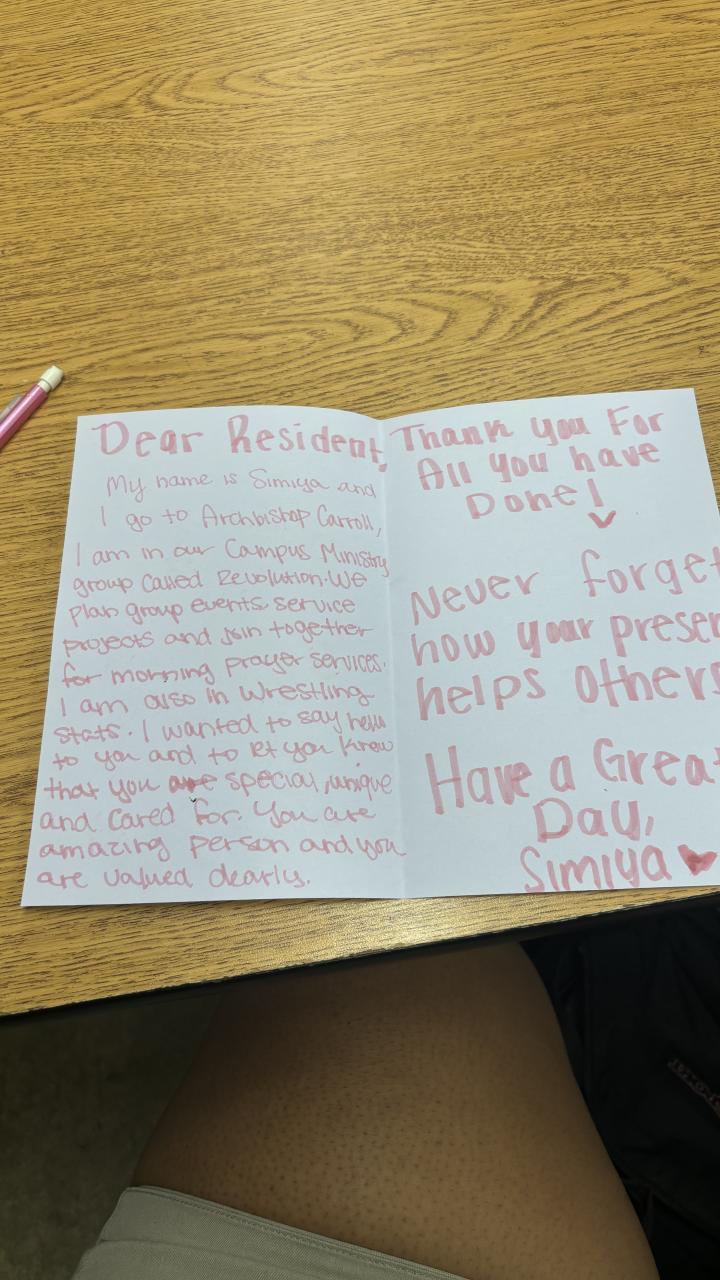 Dear Resident,
My name is Simiya and
I go to Archbishop Carroll,
I am in our Campus Ministry
group called Revolution. We
plan group events, service
projects and join together
for morning prayer services.
I am also in Wrestling
stats. I wanted to say hello
to you and to let you know
that you are special, unique
and cared for. You are
amazing person and you
are valued dearly.
Thank you For
All you have
Done!
Never forget
how your presen
helps others
Have a Great
Day,
Simiya